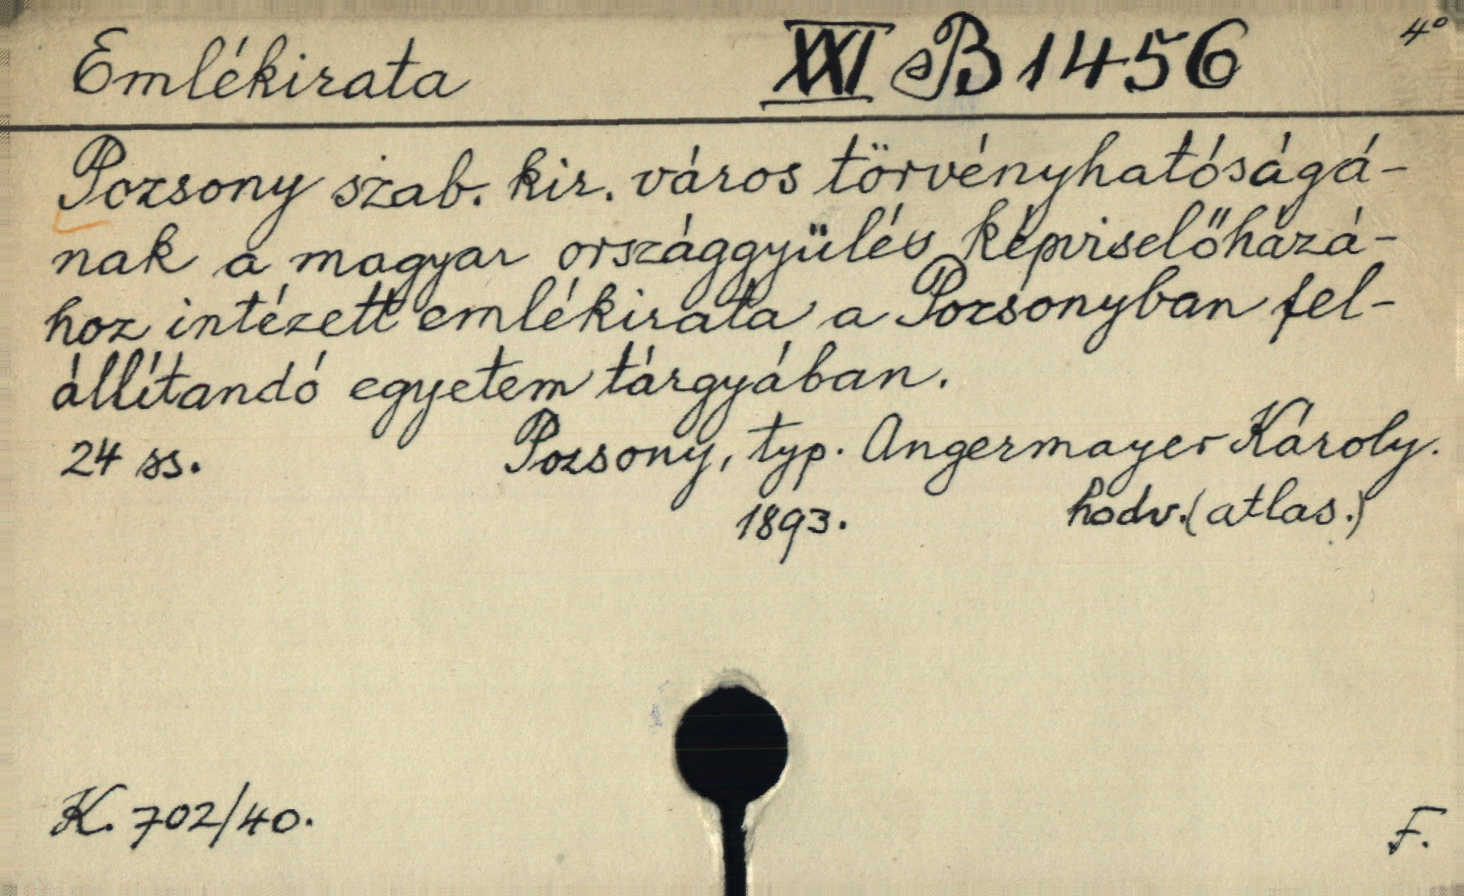 Emlékirata XXI B 1456 4°
Pozsony szab. kir. város törvényhatóságá-
nak a magyar országgyülés képviselőházá-
hoz intézett emlékirata a Pozsonyban fel-
állítandó egyetem tárgyában.
24 ss. Pozsony, typ. Angermayer Károly.
1893. hodv.(atlas.)
K. 702/40. F.